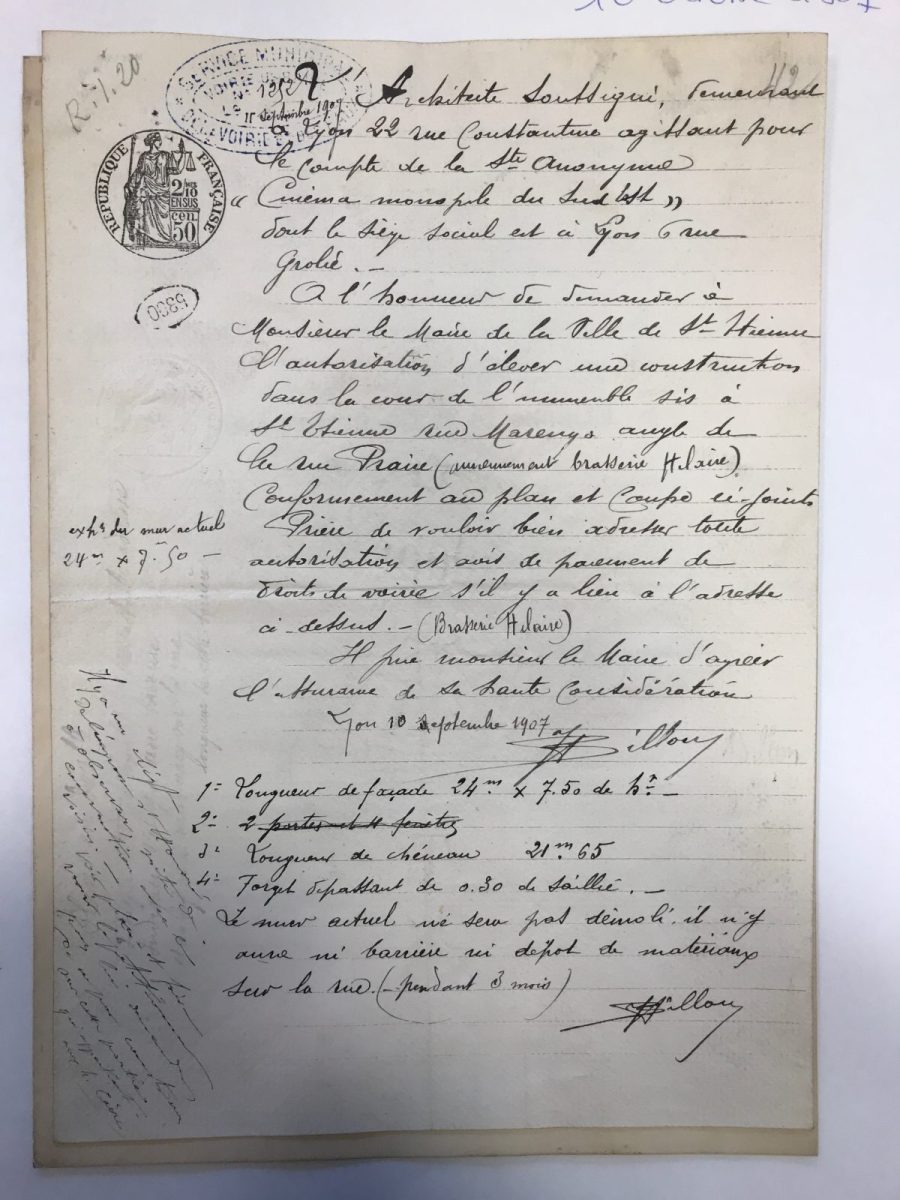 R.V. 20
SERVICE MUNICIPAL
VOIRIE
N° 1252
Le 11 Septembre 1907
DE LA VOIRIE
112
L'Architecte Soussigné, demeurant
à Lyon 22 rue Constantine agissant pour
le compte de la Sté Anonyme
RÉPUBLIQUE FRANÇAISE
2/10 EN SUS
50 cen
" Cinéma monopole du Sud Est "
dont le siège social est à Lyon 6 rue
Grolée. —
5330
A l'honneur de demander à
Monsieur le Maire de la Ville de St Etienne
l'autorisation d'élever une construction
dans la cour de l'immeuble sis à
St Etienne rue Marengo angle de
la rue Praire (anciennement brasserie Hilaire)
Conformement au plan et coupe ci-joints
exhs du mur actuel
24m x 7.50 —
Prière de vouloir bien adresser toute
autorisation et avis de paiement de
droits de voirie s'il y a lieu à l'adresse
ci-dessus. — (Brasserie Hilaire)
Il prie monsieur le Maire d'agréer
l'assurance de sa haute considération
Lyon 10 Septembre 1907
Billon
1° Longueur de façade 24m. x 7.50 de hr —
2° 2 portes et 4 fenêtres
3° Longueur de chéneau 21m.65
4° Forget dépassant de 0.30 de saillie. —
Le mur actuel ne sera pas démoli. il n'y
aura ni barrière ni dépot de matériaux
sur la rue. (— pendant 3 mois)
Billon
Il y a